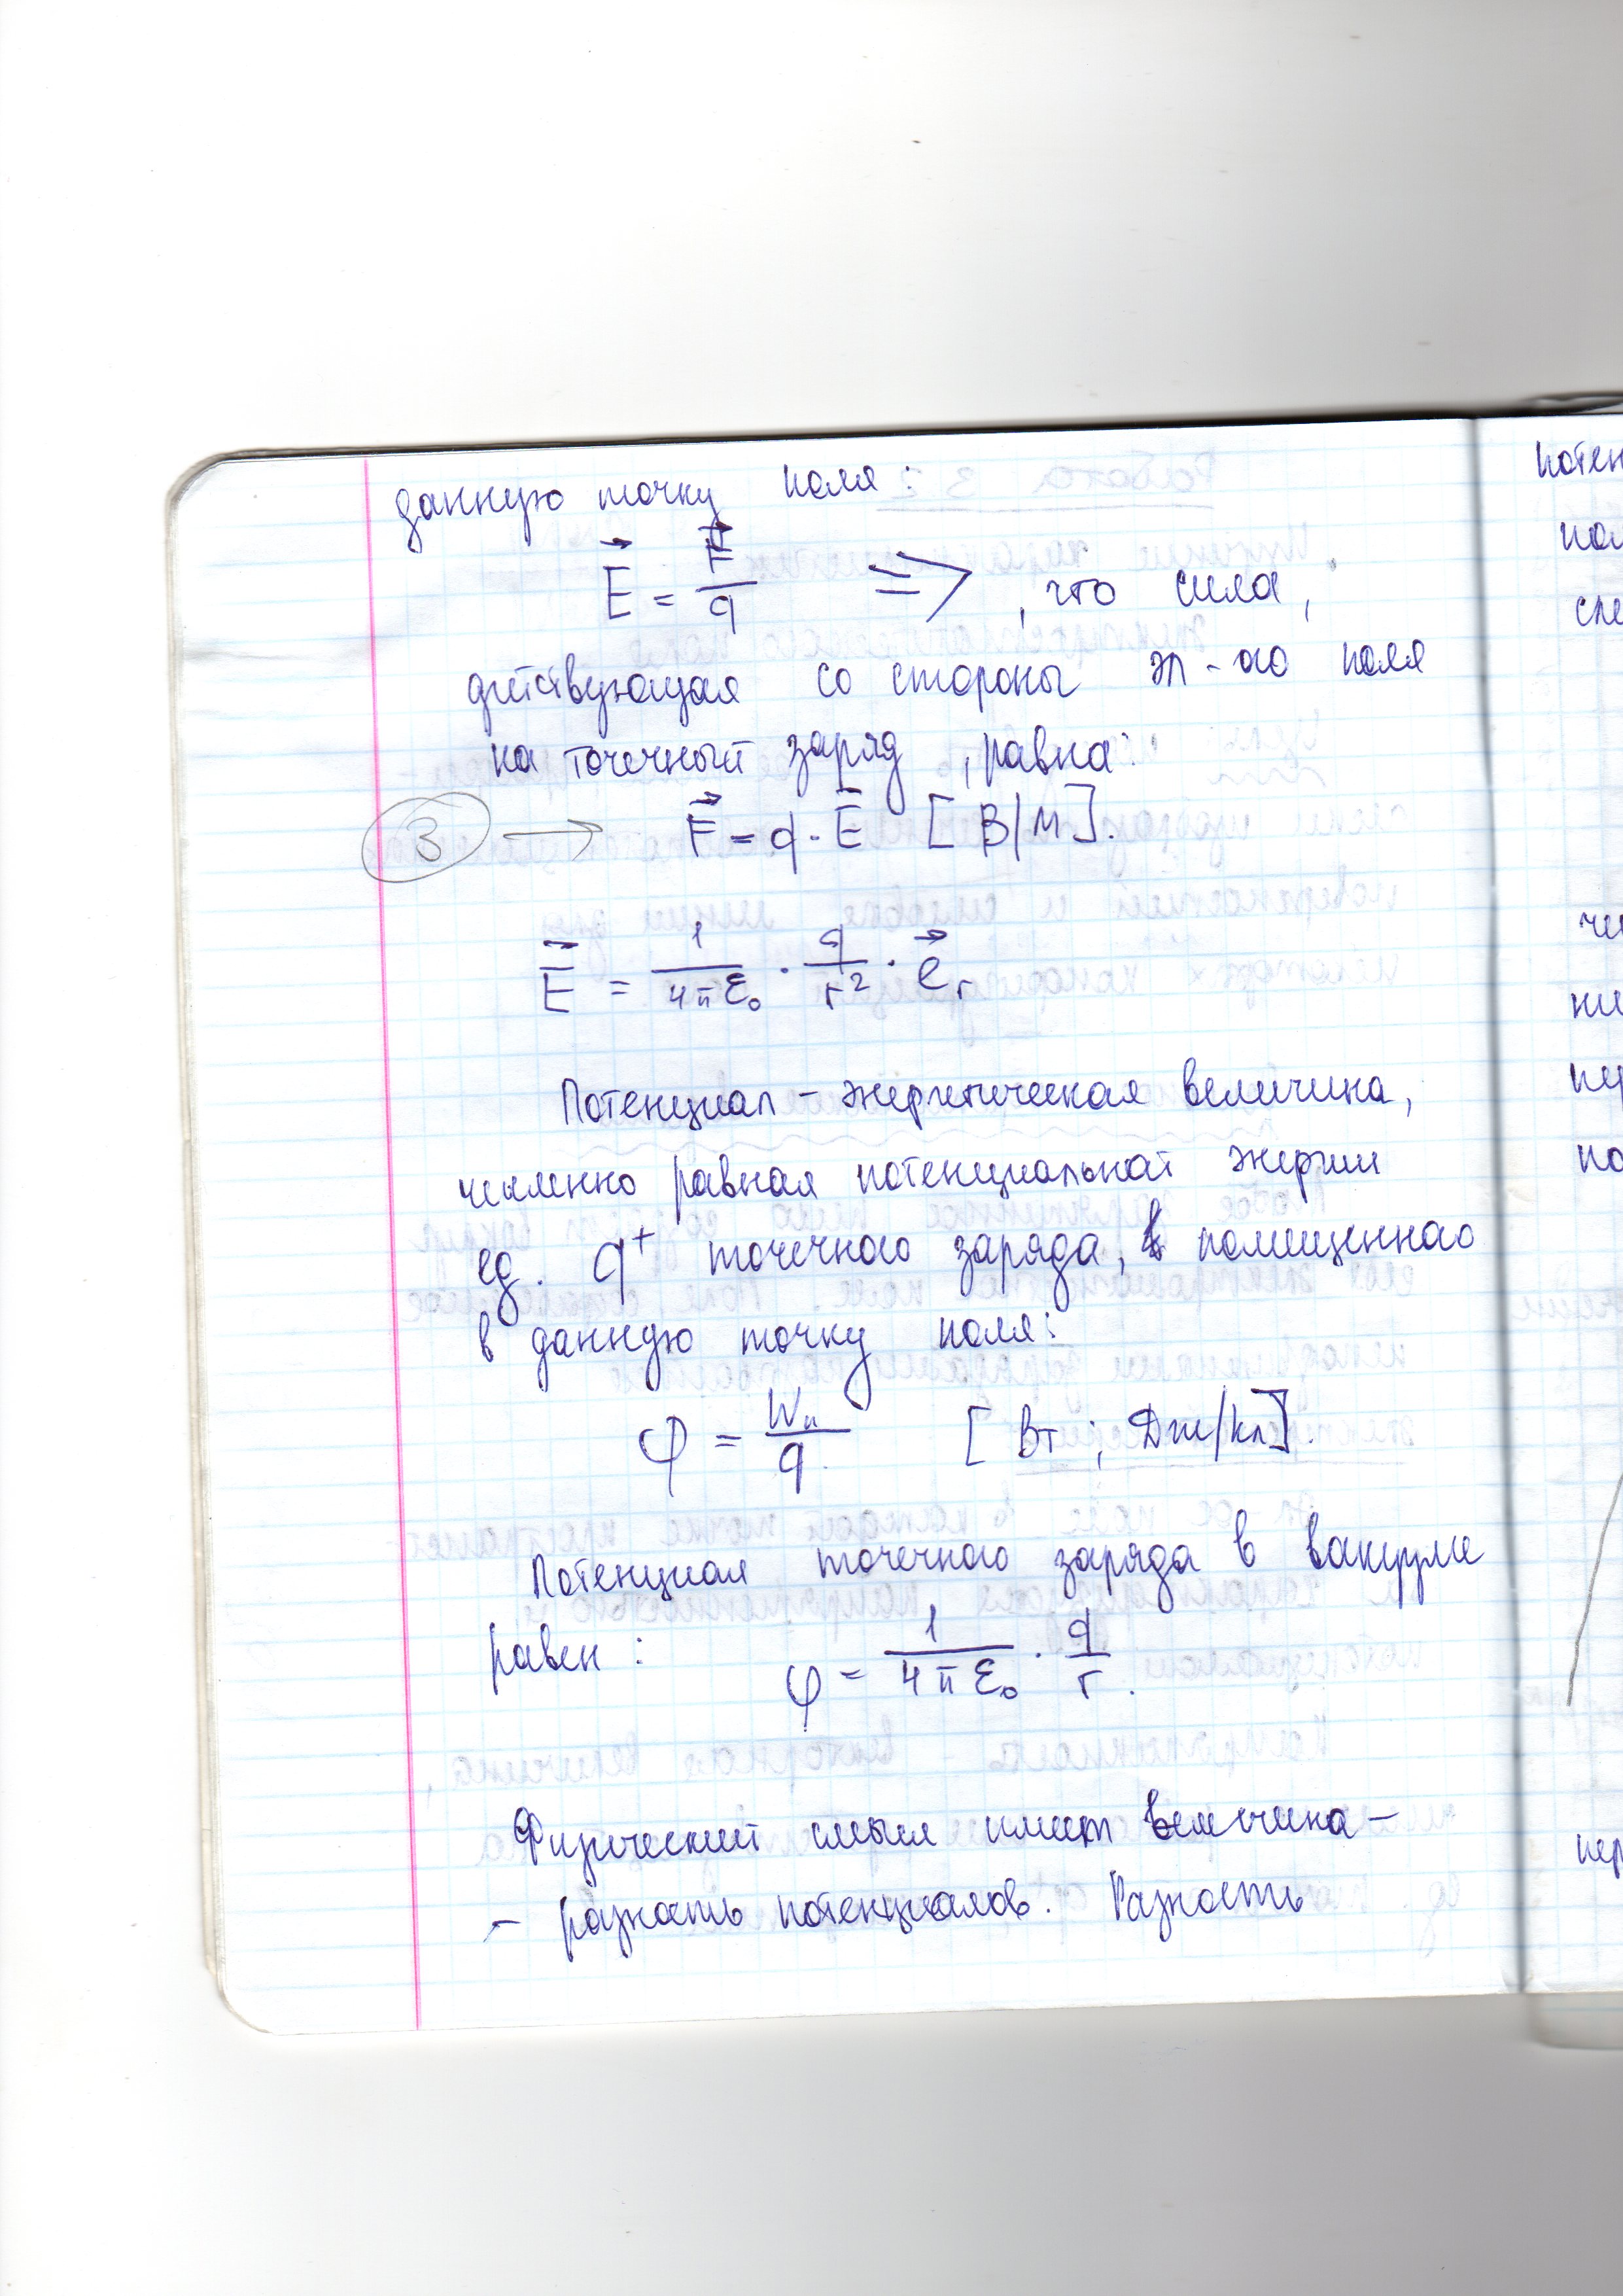 данную точку поля:
E = F/q => , что сила,
действующая со стороны эл-ого поля
на точечный заряд, равна:
3 → F = q · E [В/м].
E = 1/4πε₀ · q/r² · eᵣ
Потенциал – энергетическая величина,
численно равная потенциальной энергии
ед. q⁺ точечного заряда, помещенного
в данную точку поля:
φ = Wп/q [Вт; Дж/кл].
Потенциал точечного заряда в вакууме
равен: φ = 1/4πε₀ · q/r.
Физический смысл имеет величина –
– разность потенциалов. Разность
потен
пол
чи
ни
пер